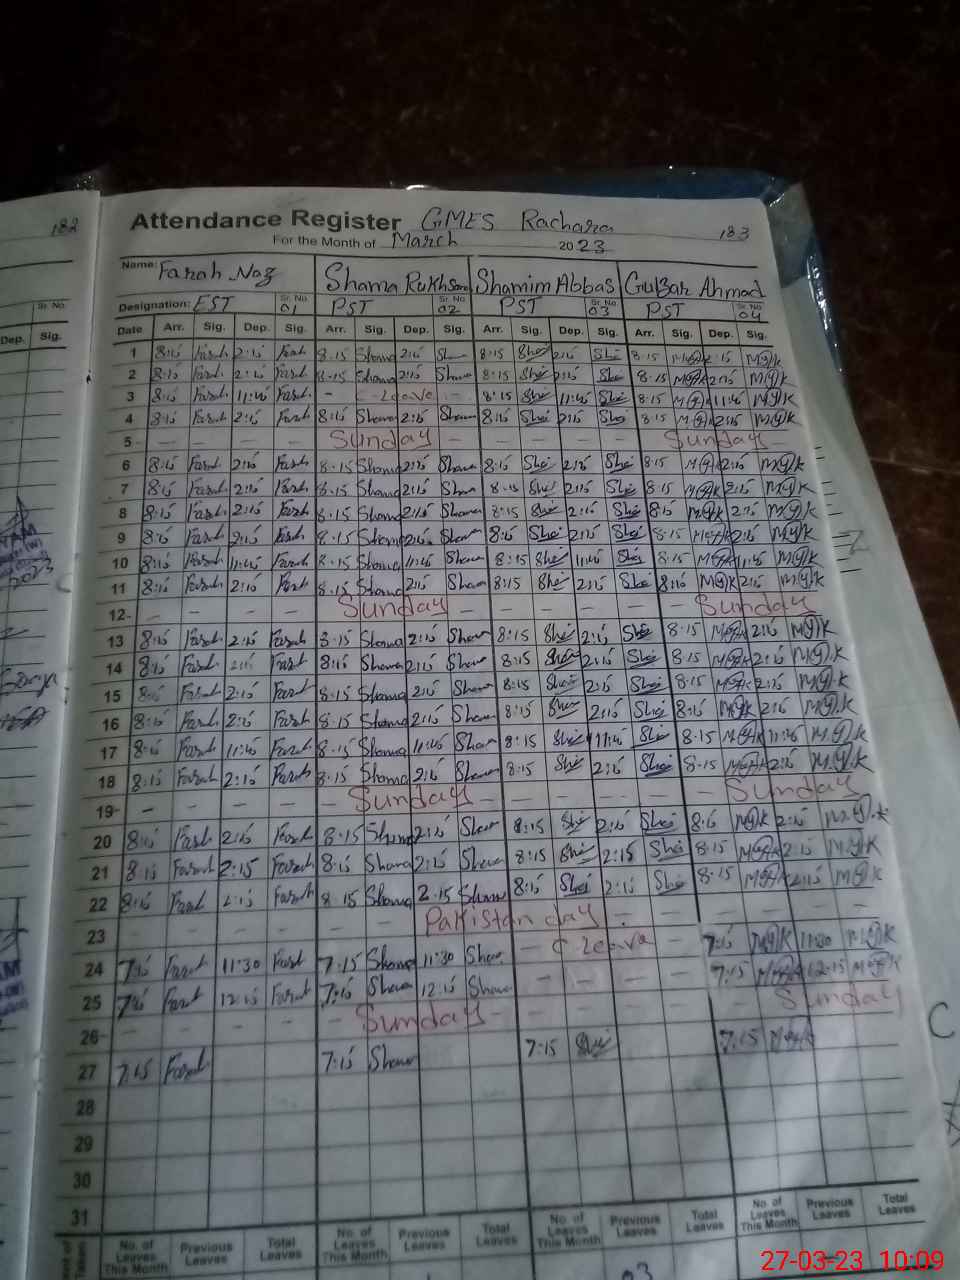 182
Attendance Register GMES Rachara 183
For the Month of March 2023
Name: Farah Naz Shama Rukhsana Shamim Abbas Gulbar Ahmad
Designation: EST Sr. No 01 PST Sr. No 02 PST Sr. No 03 PST Sr. No 04
Dep. Sig. Date Arr. Sig. Dep. Sig. Arr. Sig. Dep. Sig. Arr. Sig. Dep. Sig. Arr. Sig. Dep. Sig.
1 8:15 Farah 2:15 Farah 8:15 Shama 2:15 Sham 8:15 She 2:15 She 8:15 MGAK 2:15 MGK
2 8:15 Farah 2:15 Farah 8:15 Shama 2:15 Sham 8:15 She 2:15 She 8:15 MGAK 2:15 MGK
3 8:15 Farah 11:45 Farah - C-Leave - 8:15 She 11:45 She 8:15 MGK 11:45 MGK
4 8:15 Farah 2:15 Farah 8:15 Shama 2:15 Sham 8:15 She 2:15 She 8:15 MGAK 2:15 MGK
5 - - - - Sunday - - - - - Sunday -
6 8:15 Farah 2:15 Farah 8:15 Shama 2:15 Sham 8:15 She 2:15 She 8:15 MGK 2:15 MGK
7 8:15 Farah 2:15 Farah 8:15 Shama 2:15 Sham 8:15 She 2:15 She 8:15 MGAK 2:15 MGK
8 8:15 Farah 2:15 Farah 8:15 Shama 2:15 Sham 8:15 She 2:15 She 8:15 MGAK 2:15 MGK
9 8:15 Farah 2:15 Farah 8:15 Shama 2:15 Sham 8:15 She 2:15 She 8:15 MGAK 2:15 MGK
10 8:15 Farah 11:45 Farah 8:15 Shama 11:45 Sham 8:15 She 11:45 She 8:15 MGAK 11:45 MGK
11 8:15 Farah 2:15 Farah 8:15 Shama 2:15 Sham 8:15 She 2:15 She 8:15 MGK 2:15 MGK
12 - - - - Sunday - - - - - Sunday
13 8:15 Farah 2:15 Farah 8:15 Shama 2:15 Sham 8:15 She 2:15 She 8:15 MGAK 2:15 MGK
14 8:15 Farah 2:15 Farah 8:15 Shama 2:15 Sham 8:15 She 2:15 She 8:15 MGAK 2:15 MGK
15 8:15 Farah 2:15 Farah 8:15 Shama 2:15 Sham 8:15 She 2:15 She 8:15 MGAK 2:15 MGK
16 8:15 Farah 2:15 Farah 8:15 Shama 2:15 Sham 8:15 She 2:15 She 8:15 MGK 2:15 MGK
17 8:15 Farah 11:45 Farah 8:15 Shama 11:45 Sham 8:15 She 11:45 She 8:15 MGAK 11:45 MGK
18 8:15 Farah 2:15 Farah 8:15 Shama 2:15 Sham 8:15 She 2:15 She 8:15 MGAK 2:15 MGK
19 - - - - Sunday - - - - - Sunday
20 8:15 Farah 2:15 Farah 8:15 Shama 2:15 Sham 8:15 She 2:15 She 8:15 MGK 2:15 MGK
21 8:15 Farah 2:15 Farah 8:15 Shama 2:15 Sham 8:15 She 2:15 She 8:15 MGAK 2:15 MGK
22 8:15 Farah 2:15 Farah 8:15 Shama 2:15 Sham 8:15 She 2:15 She 8:15 MGAK 2:15 MGK
23 - - - - - - Pakistan day - - - - - -
24 7:15 Farah 11:30 Farah 7:15 Shama 11:30 Sham - C-Leave - 7:15 MGK 11:30 MGK
25 7:15 Farah 12:15 Farah 7:15 Shama 12:15 Sham - - - - 7:15 MGAK 12:15 MGK
26 - - - - Sunday - - - - - Sunday
27 7:15 Farah 7:15 Sham 7:15 She 7:15 MGAK
28
29
30
31
No. of Leaves This Month Previous Leaves Total Leaves No. of Leaves This Month Previous Leaves Total Leaves No. of Leaves This Month Previous Leaves Total Leaves No. of Leaves This Month Previous Leaves Total Leaves
03
27-03-23 10:09